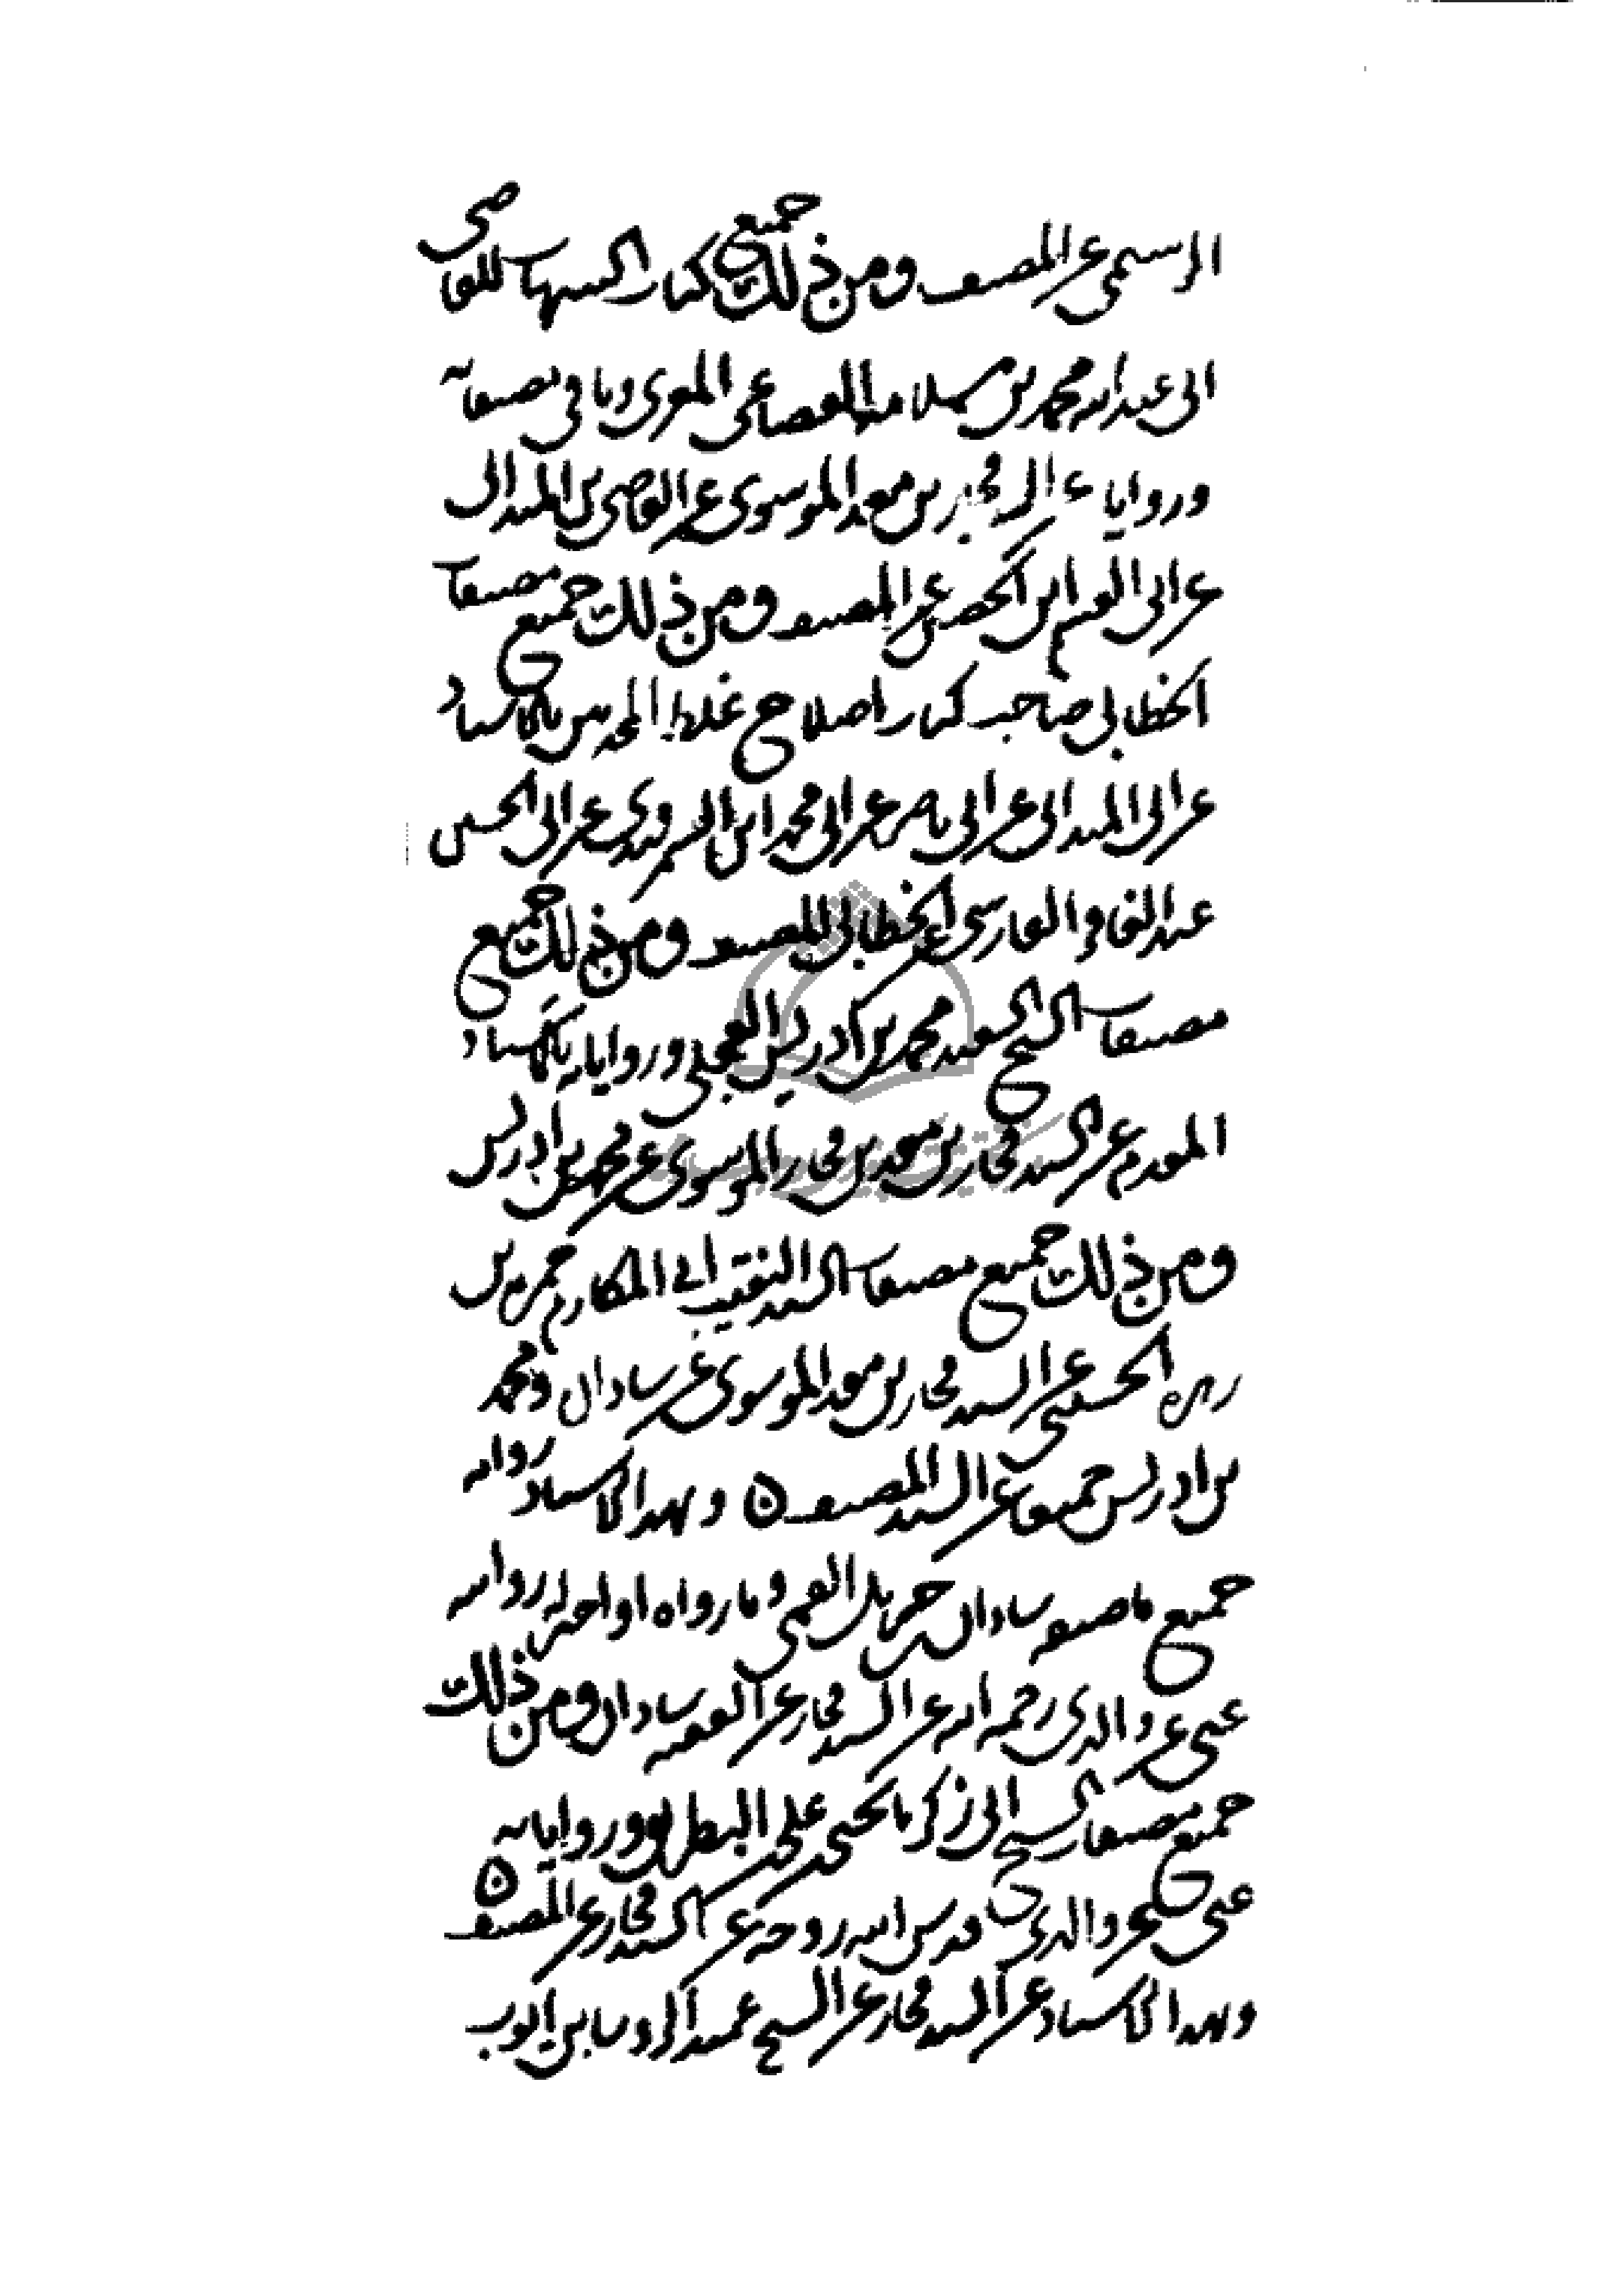 الرسمى عن المصنف ومن ذلك جميع كتاب الشهاب للقاضى
ابى عبد الله محمد بن سلامه القضاعى المغربى وباقى تصنيفاته
ورواياته عن السيد فخار بن معد الموسوى عن القاضى بن الميداني
عن ابى القسم ابن الحصين عن المصنف ومن ذلك جميع مصنفات
الخطابى صاحب كتاب اصلاح غلط المحدثين بالاسناد
عن ابن الميدانى عن ابن ناصر عن ابى محمد ابن السمرقندى عن ابى الحسين
عبد الغافر الفارسى عن الخطابى المصنف ومن ذلك جميع
مصنفات الشيخ السعيد محمد بن ادريس العجلى ورواياته بالاسناد
المقدم عن السيد فخار بن معد بن فخار الموسوى عن محمد بن ادريس
ومن ذلك جميع مصنفات السيد النقيب ابى المكارم حمزه بن
زهره الحسينى عن السيد فخار بن معد الموسوى عن شاذان ومحمد
بن ادريس جميعا عن السيد المصنف ٥ وبهذا الاسناد روايه
جميع ما صنفه شاذان جبريل القمى وما رواه او اجيز له روايته
عنى عن والدى رحمه الله عن السيد فخار عن الفقيه شاذان ومن ذلك
جميع مصنفات الشيخ ابى زكريا يحيى بن على البطريق ورواياته
عنى عن والدى قدس الله روحه عن السيد فخار عن المصنف ٥
وبهذا الاسناد عن السيد فخار عن الشيخ عميد الروسا بن ايوب